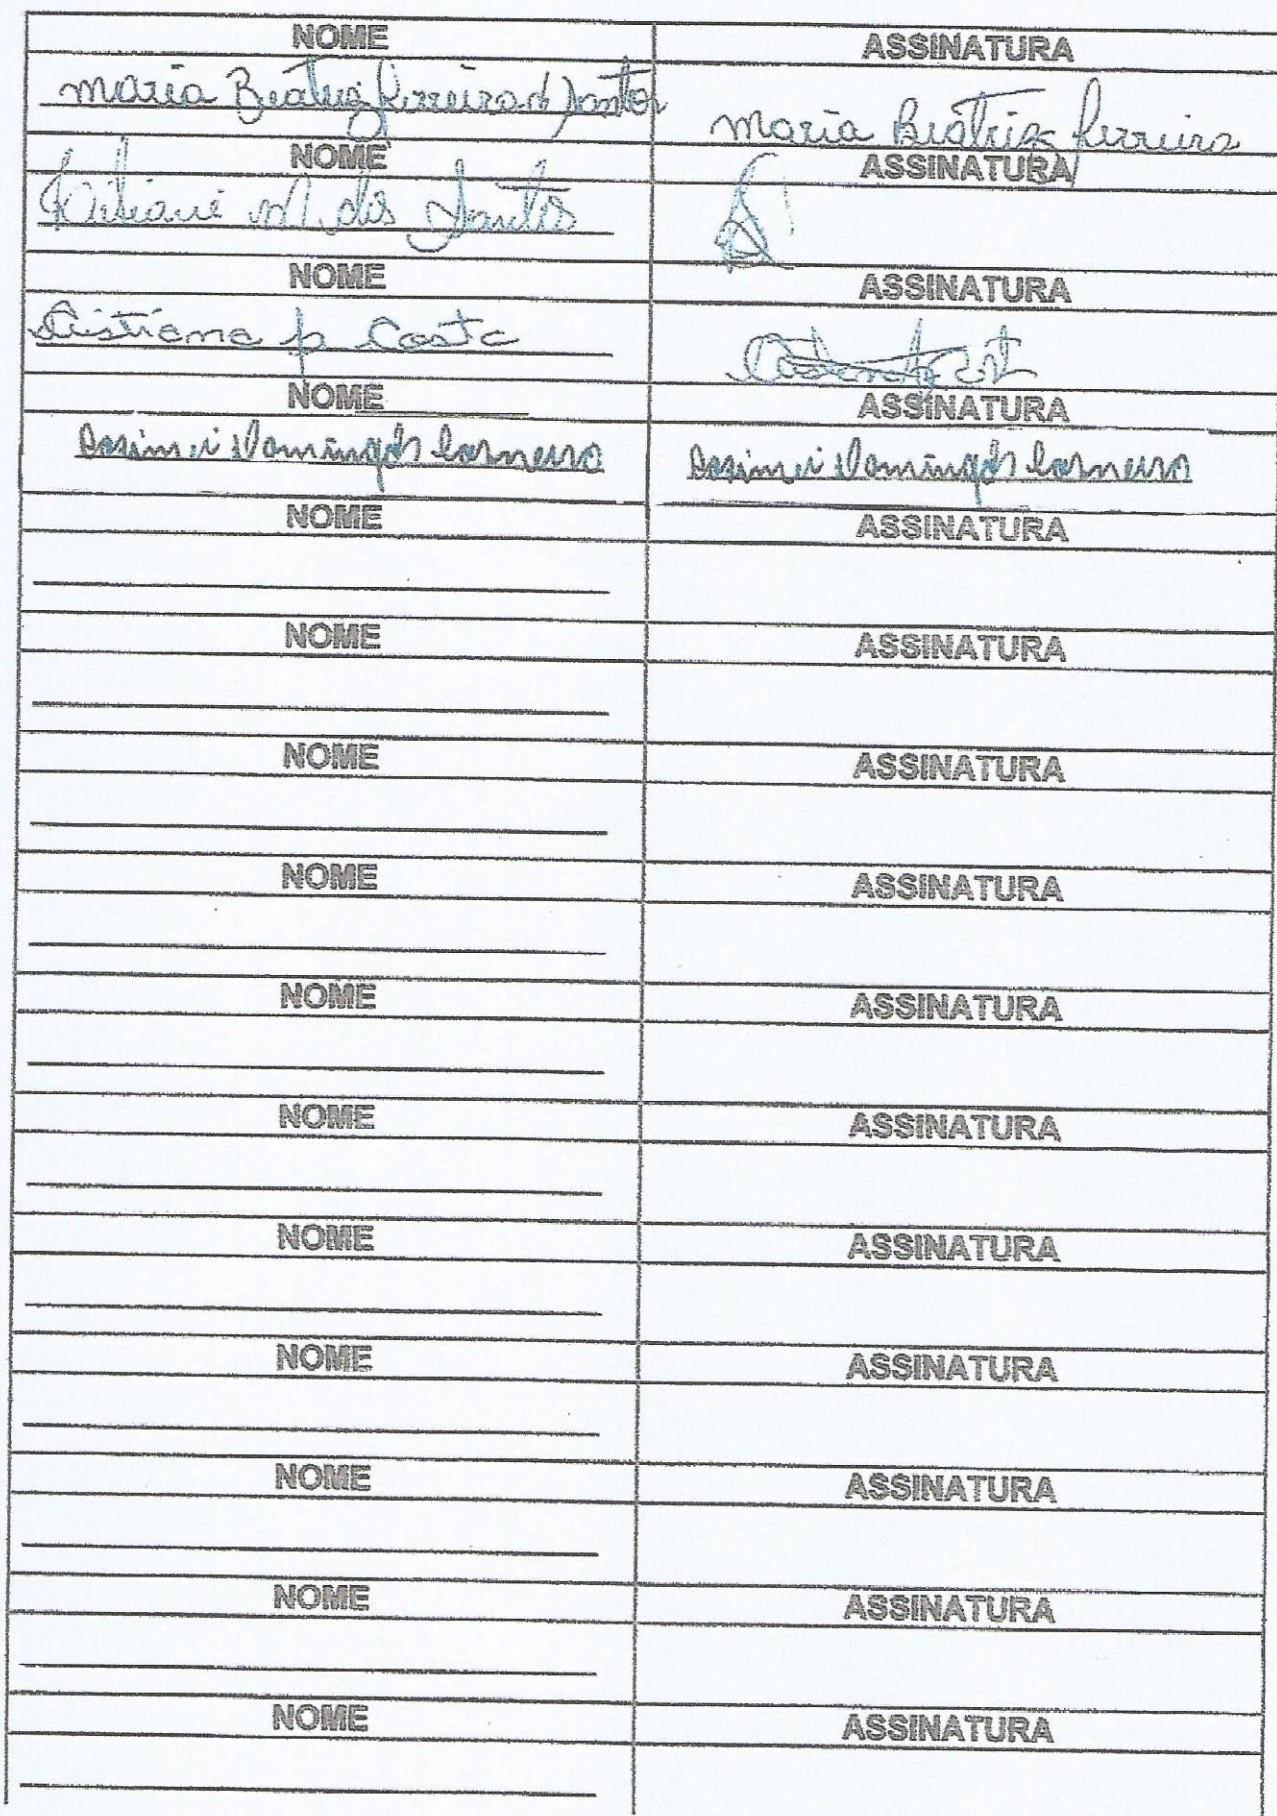 NOME ASSINATURA
maria Beatriz ferreira d Santos maria Beatriz ferreira
NOME ASSINATURA
M. dos Santos
NOME ASSINATURA
Cristiana p Costa
NOME ASSINATURA
Domingos Carneiro Domingos Carneiro
NOME ASSINATURA
NOME ASSINATURA
NOME ASSINATURA
NOME ASSINATURA
NOME ASSINATURA
NOME ASSINATURA
NOME ASSINATURA
NOME ASSINATURA
NOME ASSINATURA
NOME ASSINATURA
NOME ASSINATURA